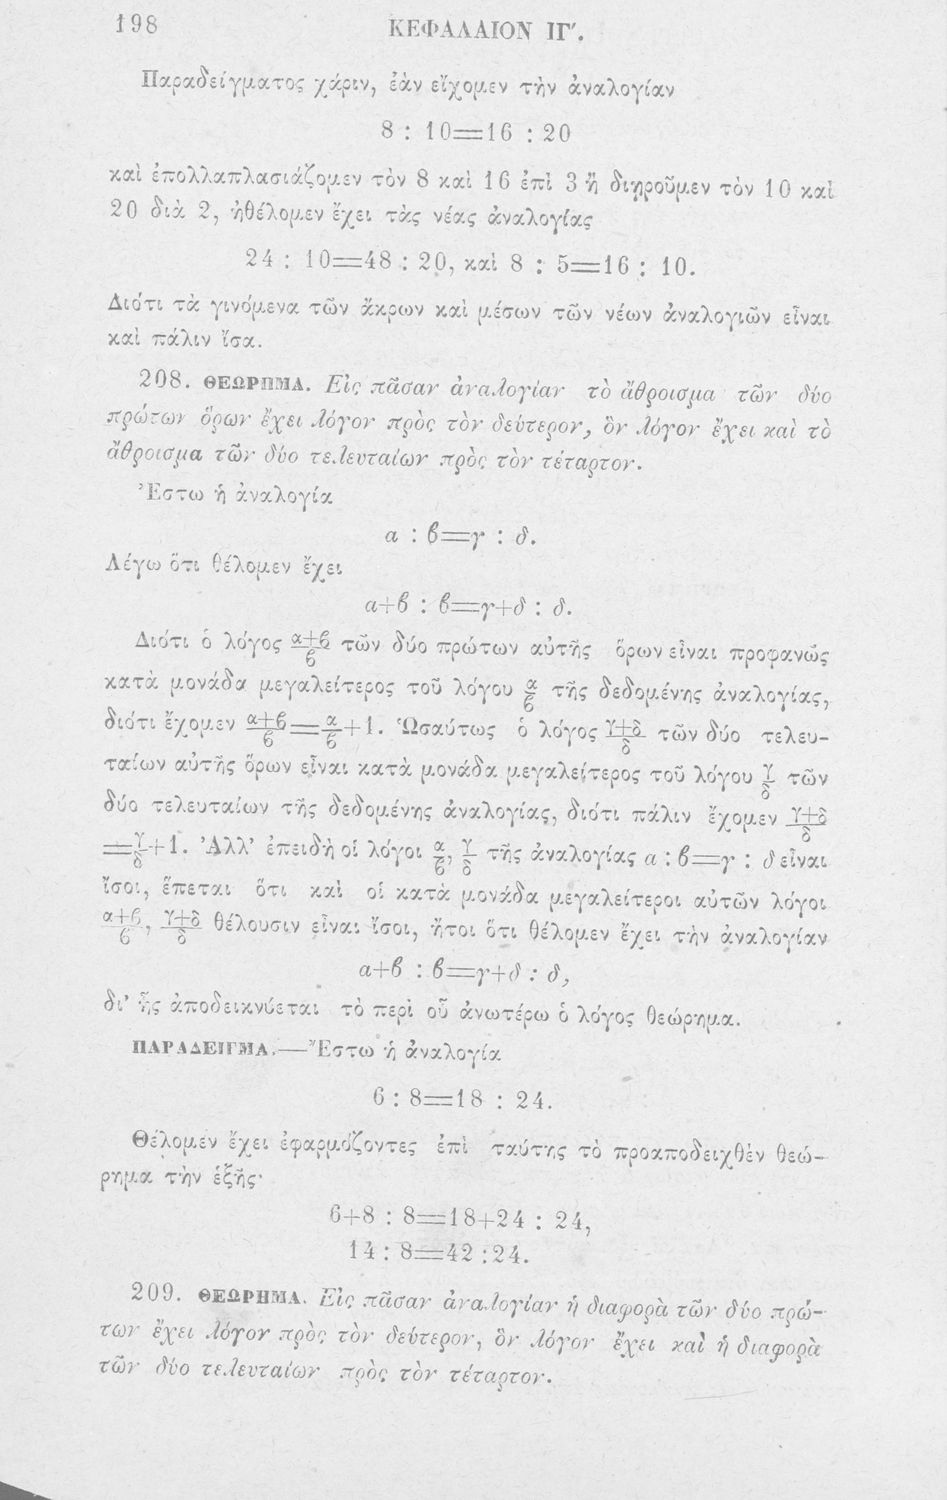 198 ΚΕΦΑΛΑΙΟΝ ΙΓ'.
Παραδείγματος χάριν, ἐὰν εἴχομεν τὴν ἀναλογίαν
8 : 10=16 : 20
καὶ ἐπολλαπλασιάζομεν τὸν 8 καὶ 16 ἐπὶ 3 ἢ διῃροῦμεν τὸν 10 καὶ
20 διὰ 2, ἠθέλομεν ἔχει τὰς νέας ἀναλογίας
24 : 10=48 : 20, καὶ 8 : 5=16 : 10.
Διότι τὰ γινόμενα τῶν ἄκρων καὶ μέσων τῶν νέων ἀναλογιῶν εἶναι
καὶ πάλιν ἴσα.
208. ΘΕΩΡΗΜΑ. Εἰς πᾶσαν ἀναλογίαν τὸ ἄθροισμα τῶν δύο
πρώτων ὅρων ἔχει λόγον πρὸς τὸν δεύτερον, ὃν λόγον ἔχει καὶ τὸ
ἄθροισμα τῶν δύο τελευταίων πρὸς τὸν τέταρτον.
Ἔστω ἡ ἀναλογία
α : β=γ : δ.
Λέγω ὅτι θέλομεν ἔχει
α+β : β=γ+δ : δ.
Διότι ὁ λόγος (α+β)/β τῶν δύο πρώτων αὐτῆς ὅρων εἶναι προφανῶς
κατὰ μονάδα μεγαλείτερος τοῦ λόγου α/β τῆς δεδομένης ἀναλογίας,
διότι ἔχομεν (α+β)/β=α/β+1. Ὡσαύτως ὁ λόγος (γ+δ)/δ τῶν δύο τελευ-
ταίων αὐτῆς ὅρων εἶναι κατὰ μονάδα μεγαλείτερος τοῦ λόγου γ/δ τῶν
δύο τελευταίων τῆς δεδομένης ἀναλογίας, διότι πάλιν ἔχομεν (γ+δ)/δ
=γ/δ+1. Ἀλλ' ἐπειδὴ οἱ λόγοι α/β, γ/δ τῆς ἀναλογίας α : β=γ : δ εἶναι
ἴσοι, ἕπεται ὅτι καὶ οἱ κατὰ μονάδα μεγαλείτεροι αὐτῶν λόγοι
(α+β)/β, (γ+δ)/δ θέλουσιν εἶναι ἴσοι, ἤτοι ὅτι θέλομεν ἔχει τὴν ἀναλογίαν
α+β : β=γ+δ : δ,
δι' ἧς ἀποδεικνύεται τὸ περὶ οὗ ἀνωτέρω ὁ λόγος θεώρημα.
ΠΑΡΑΔΕΙΓΜΑ.—Ἔστω ἡ ἀναλογία
6 : 8=18 : 24.
Θέλομεν ἔχει ἐφαρμόζοντες ἐπὶ ταύτης τὸ προαποδειχθὲν θεώ-
ρημα τὴν ἑξῆς·
6+8 : 8=18+24 : 24,
14 : 8=42 : 24.
209. ΘΕΩΡΗΜΑ. Εἰς πᾶσαν ἀναλογίαν ἡ διαφορὰ τῶν δύο πρώ-
των ἔχει λόγον πρὸς τὸν δεύτερον, ὃν λόγον ἔχει καὶ ἡ διαφορὰ
τῶν δύο τελευταίων πρὸς τὸν τέταρτον.